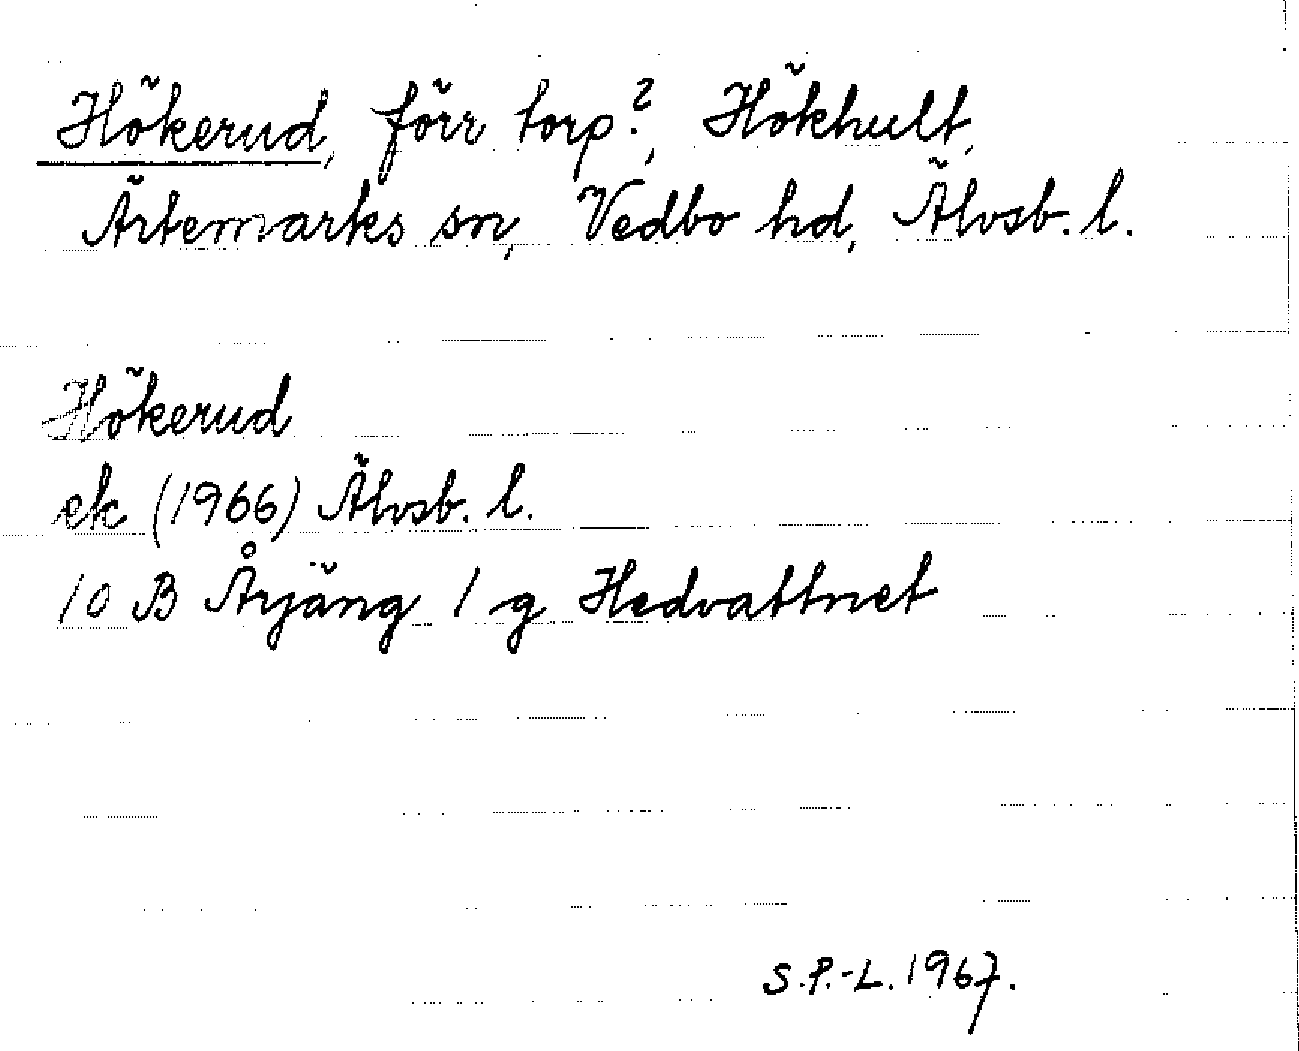 Hökerud, förr torp?, Hökhult,
Ärtemarks sn, Vedbo hd, Älvsb. l.
Hökerud
ek (1966) Älvsb. l.
10 B Årjäng 1 g Hedvattnet
S.P.-L. 1967.